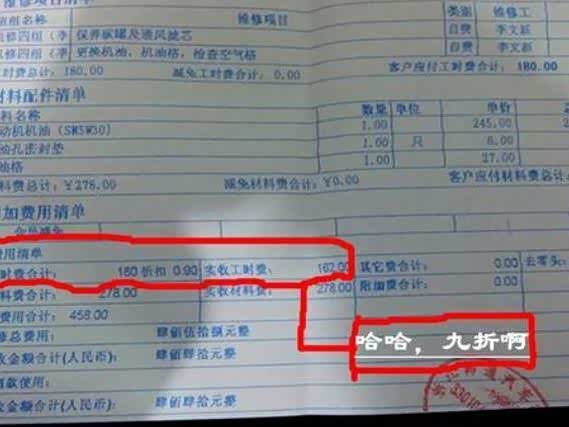 维修项目清单
班组名称 维修项目 类别 维修工
维修四组（李 保养碳罐及通风滤芯 自费 李文新
维修四组（李 更换机油，机油格，检查空气格 自费 李文新
时费总计：180.00 减免工时费合计：0.00 客户应付工时费合计：180.00
材料配件清单
料名称 数量 单位 单价
动机机油（SM5W30） 1.00 245.00
油孔密封垫 1.00 只 6.00
油格 1.00 27.00
料费总计：¥278.00 减免材料费合计：¥0.00 客户应付材料费总计：
加费用清单
费用清单
时费合计： 180 折扣 0.90 实收工时费： 162.00 其它费合计： 0.00 去零头：
料费合计： 278.00 实收材料费： 278.00 附加费合计： 0.00
用合计： 458.00
修总费用： 肆佰伍拾捌元整
哈哈，九折啊
收金额合计(人民币)： 肆佰肆拾元整
款使用：
收金额合计(人民币)： 肆佰肆拾元整